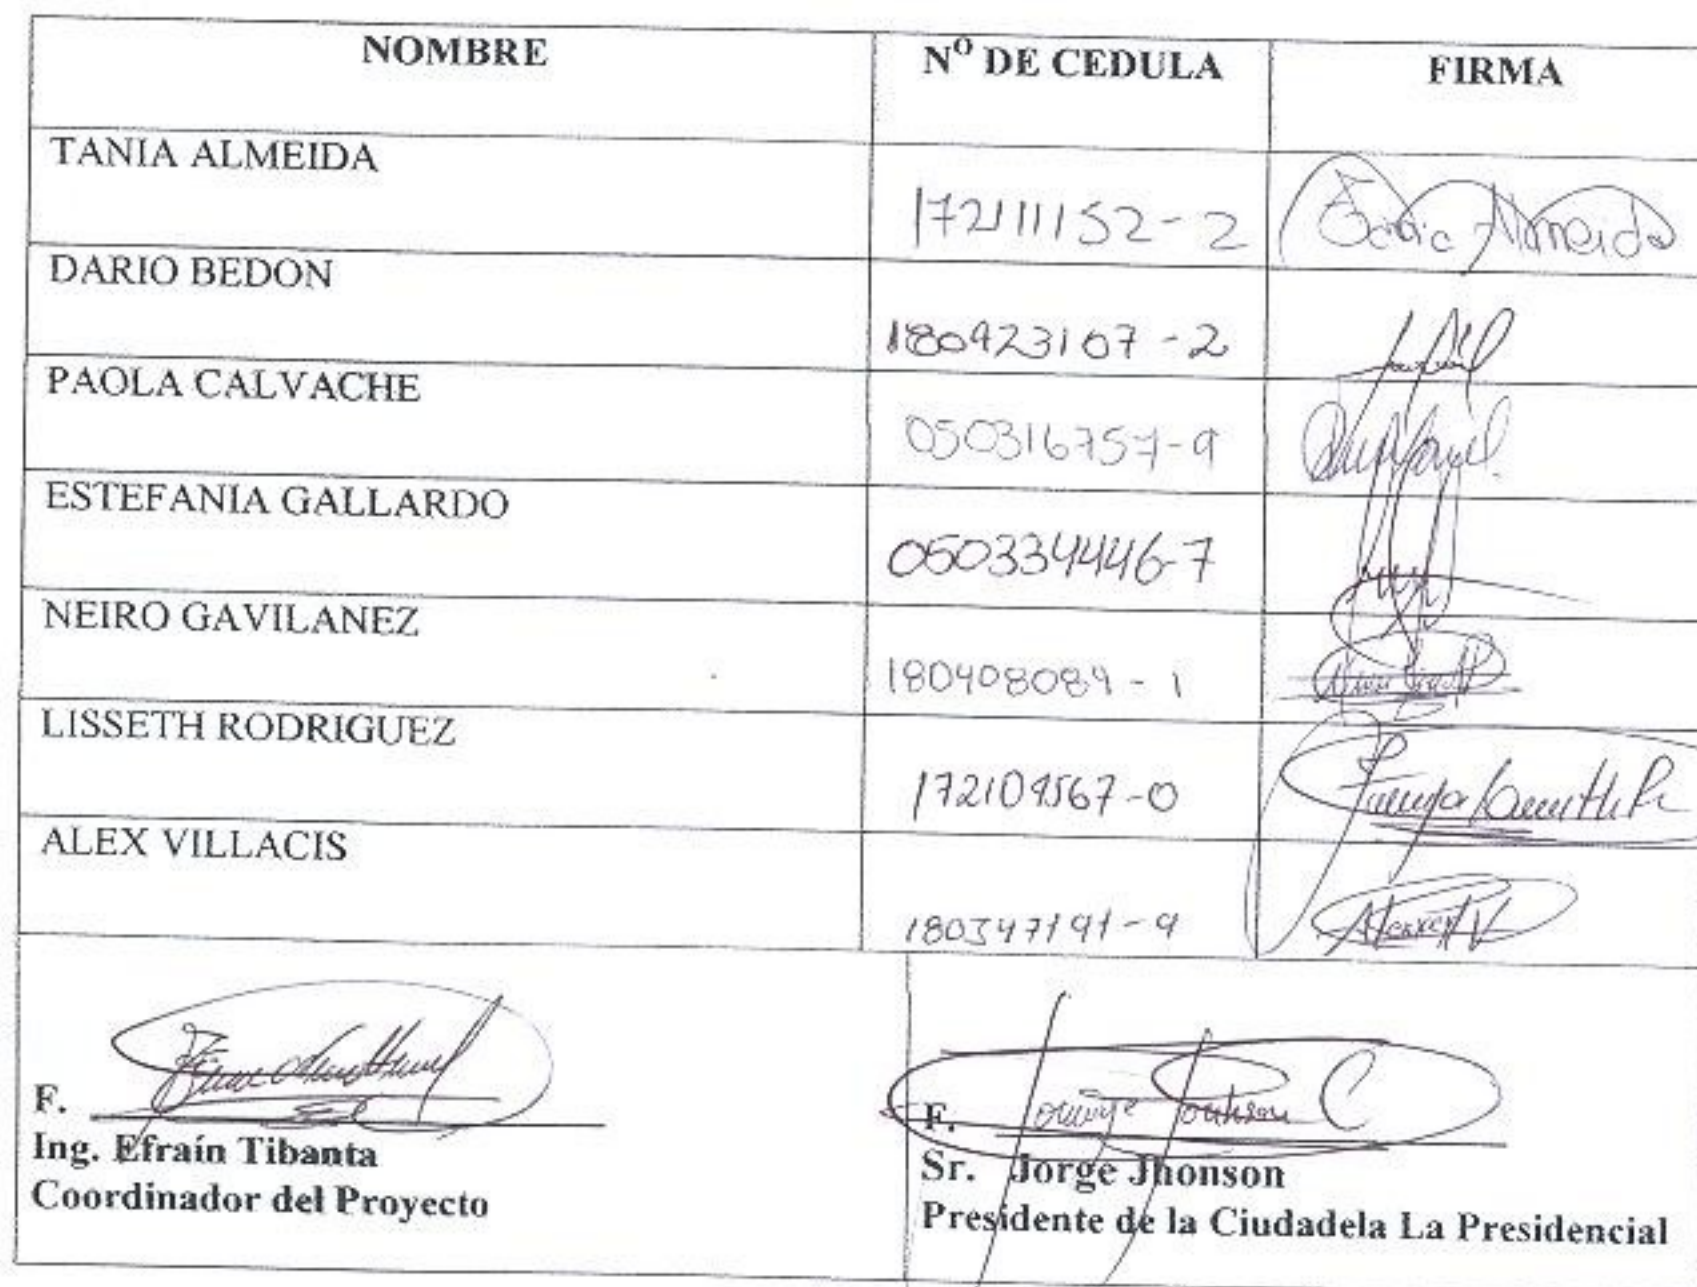 NOMBRE Nº DE CEDULA FIRMA
TANIA ALMEIDA 172111152-2 Tania Almeida
DARIO BEDON 180423107-2
PAOLA CALVACHE 050316757-9
ESTEFANIA GALLARDO 050334446-7
NEIRO GAVILANEZ 180408089-1
LISSETH RODRIGUEZ 172104567-0
ALEX VILLACIS 180347191-9
F.
Ing. Efraín Tibanta
Coordinador del Proyecto
F.
Sr. Jorge Jhonson
Presidente de la Ciudadela La Presidencial